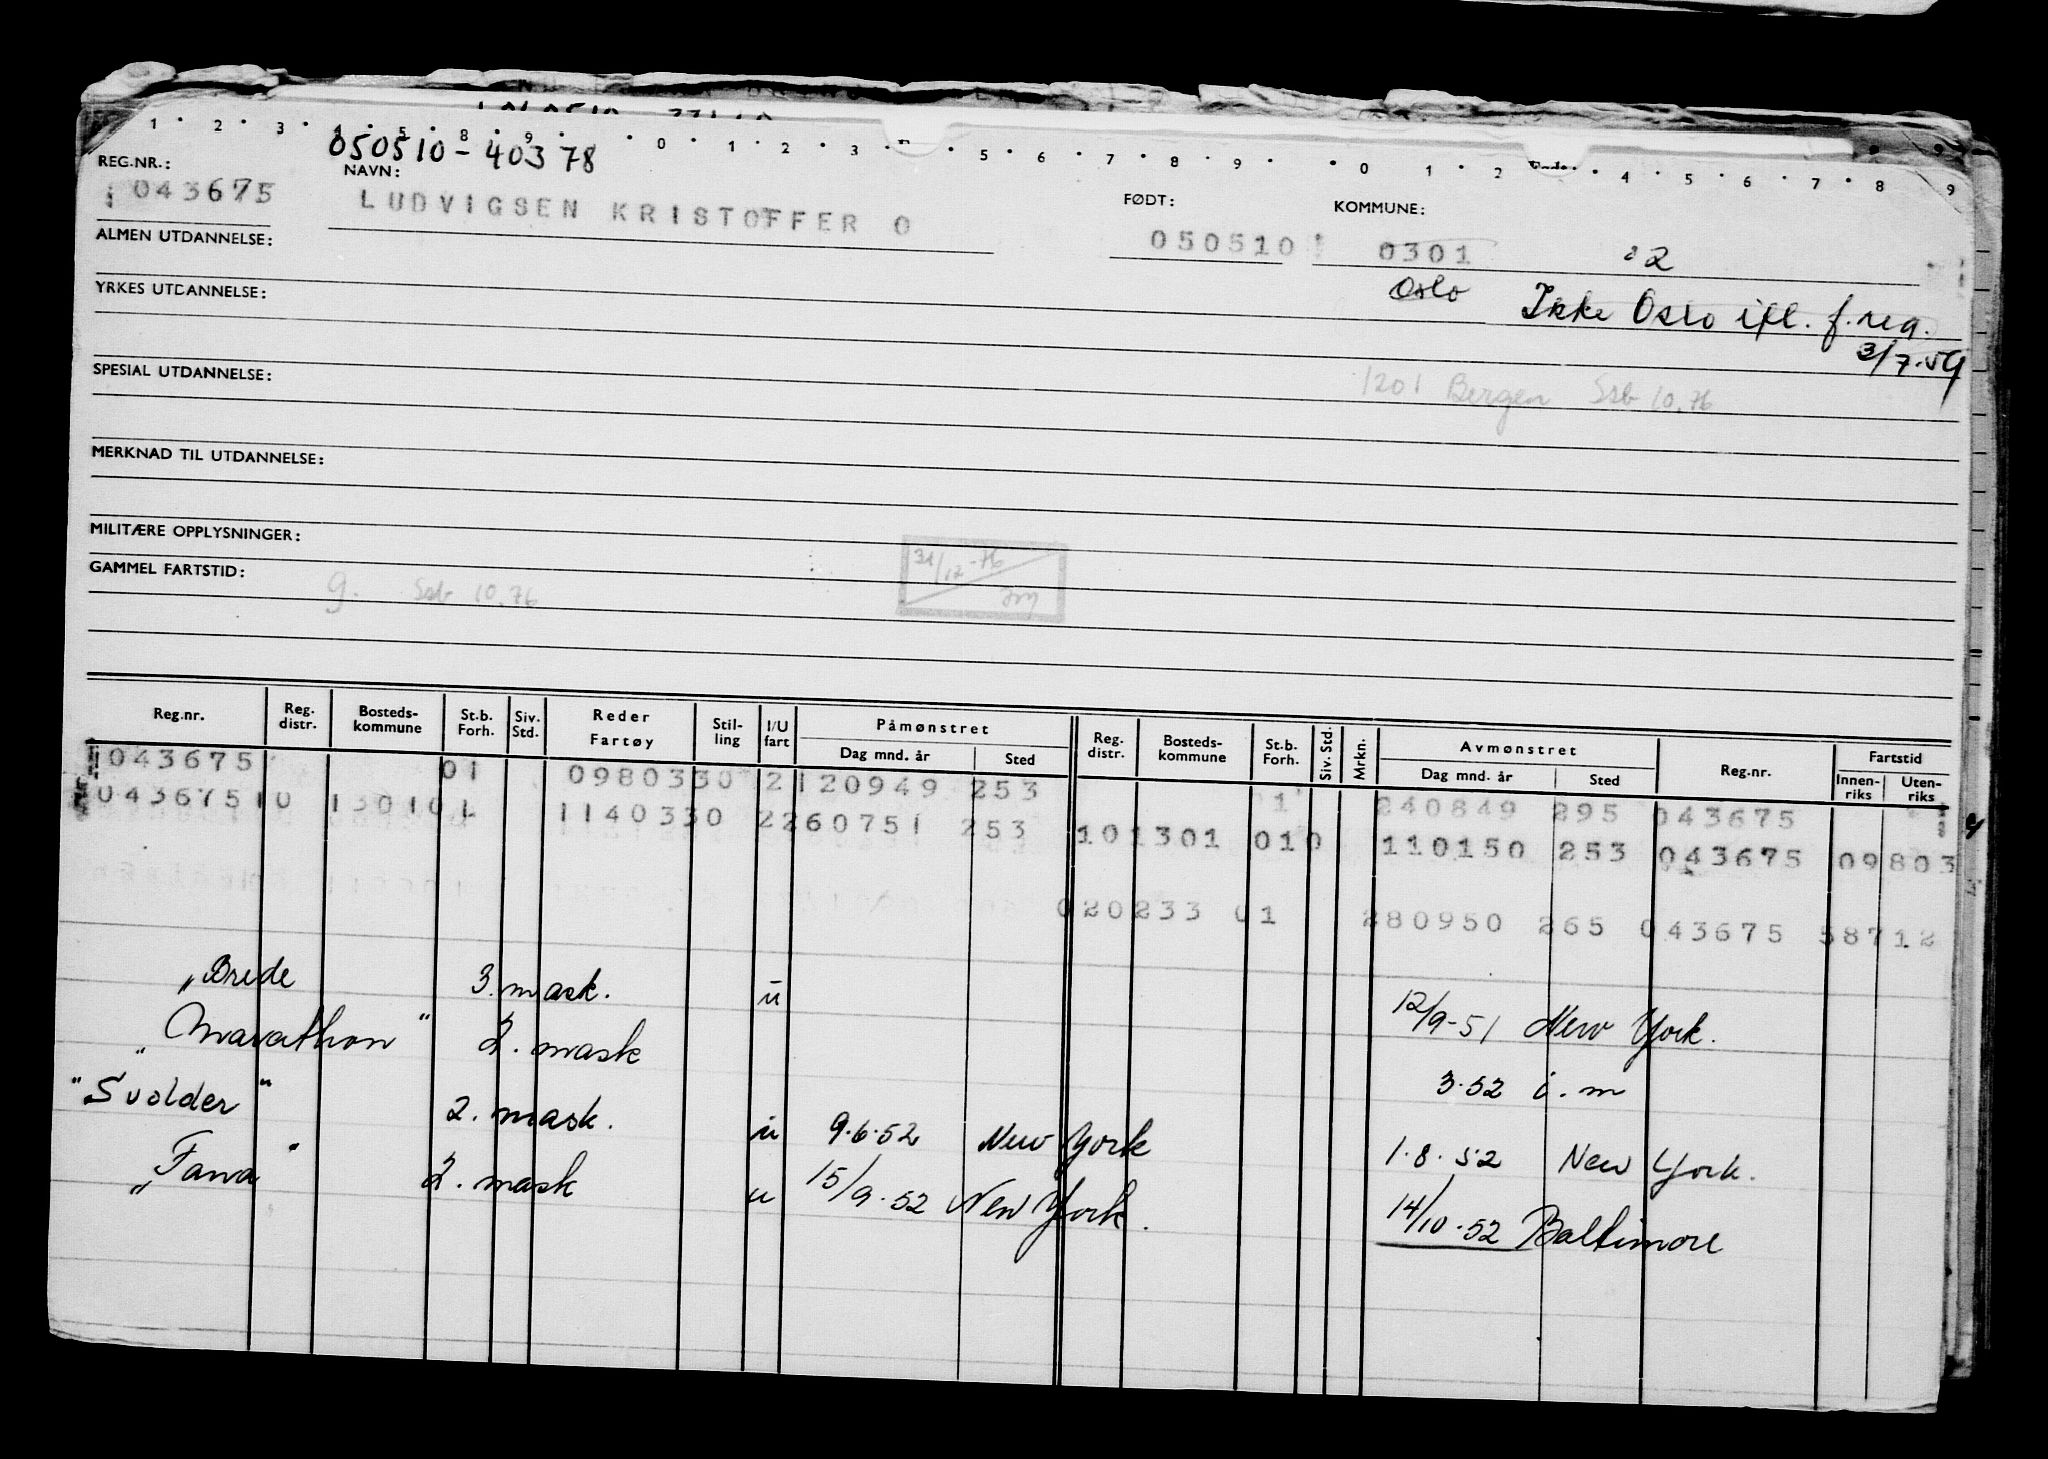 1 2 3 4 5 8 9 0 1 2 3 5 6 7 8 9 0 1 2 4 5 6 7 8 9
050510-40378
REG.NR.: NAVN: FØDT: KOMMUNE:
043675 LUDVIGSEN KRISTOFFER O 050510 0301 2
ALMEN UTDANNELSE:
Oslo Ikke Oslo ifl. f.reg.
YRKES UTDANNELSE:
3/7.59
SPESIAL UTDANNELSE:
1201 Bergen Ssb 10.76
MERKNAD TIL UTDANNELSE:
MILITÆRE OPPLYSNINGER:
31/12-76
GAMMEL FARTSTID:
g. Ssb 10.76
Reg.nr. Reg. distr. Bosteds- kommune St.b. Forh. Siv. Std. Reder Fartøy Stil- ling I/U fart Påmønstret Dag mnd. år Sted Reg. distr. Bosteds- kommune St.b. Forh. Siv. Std. Mrkn. Avmønstret Dag mnd. år Sted Reg.nr. Fartstid Innen- riks Uten- riks
043675 01 0980330 2 120949 253 1 240849 295 043675
043675 10 1301 01 1140330 2 260751 253 101301 010 110150 253 043675 09803
020233 01 280950 265 043675 58712
„Brede 3. mask. u 12/9-51 New York.
„Marathon" 2. mask 3.52 i.m
"Svolder" 2. mask. u 9.6.52 New York 1.8.52 New York.
„Fana" 2. mask u 15/9.52 New York. 14/10.52 Baltimore